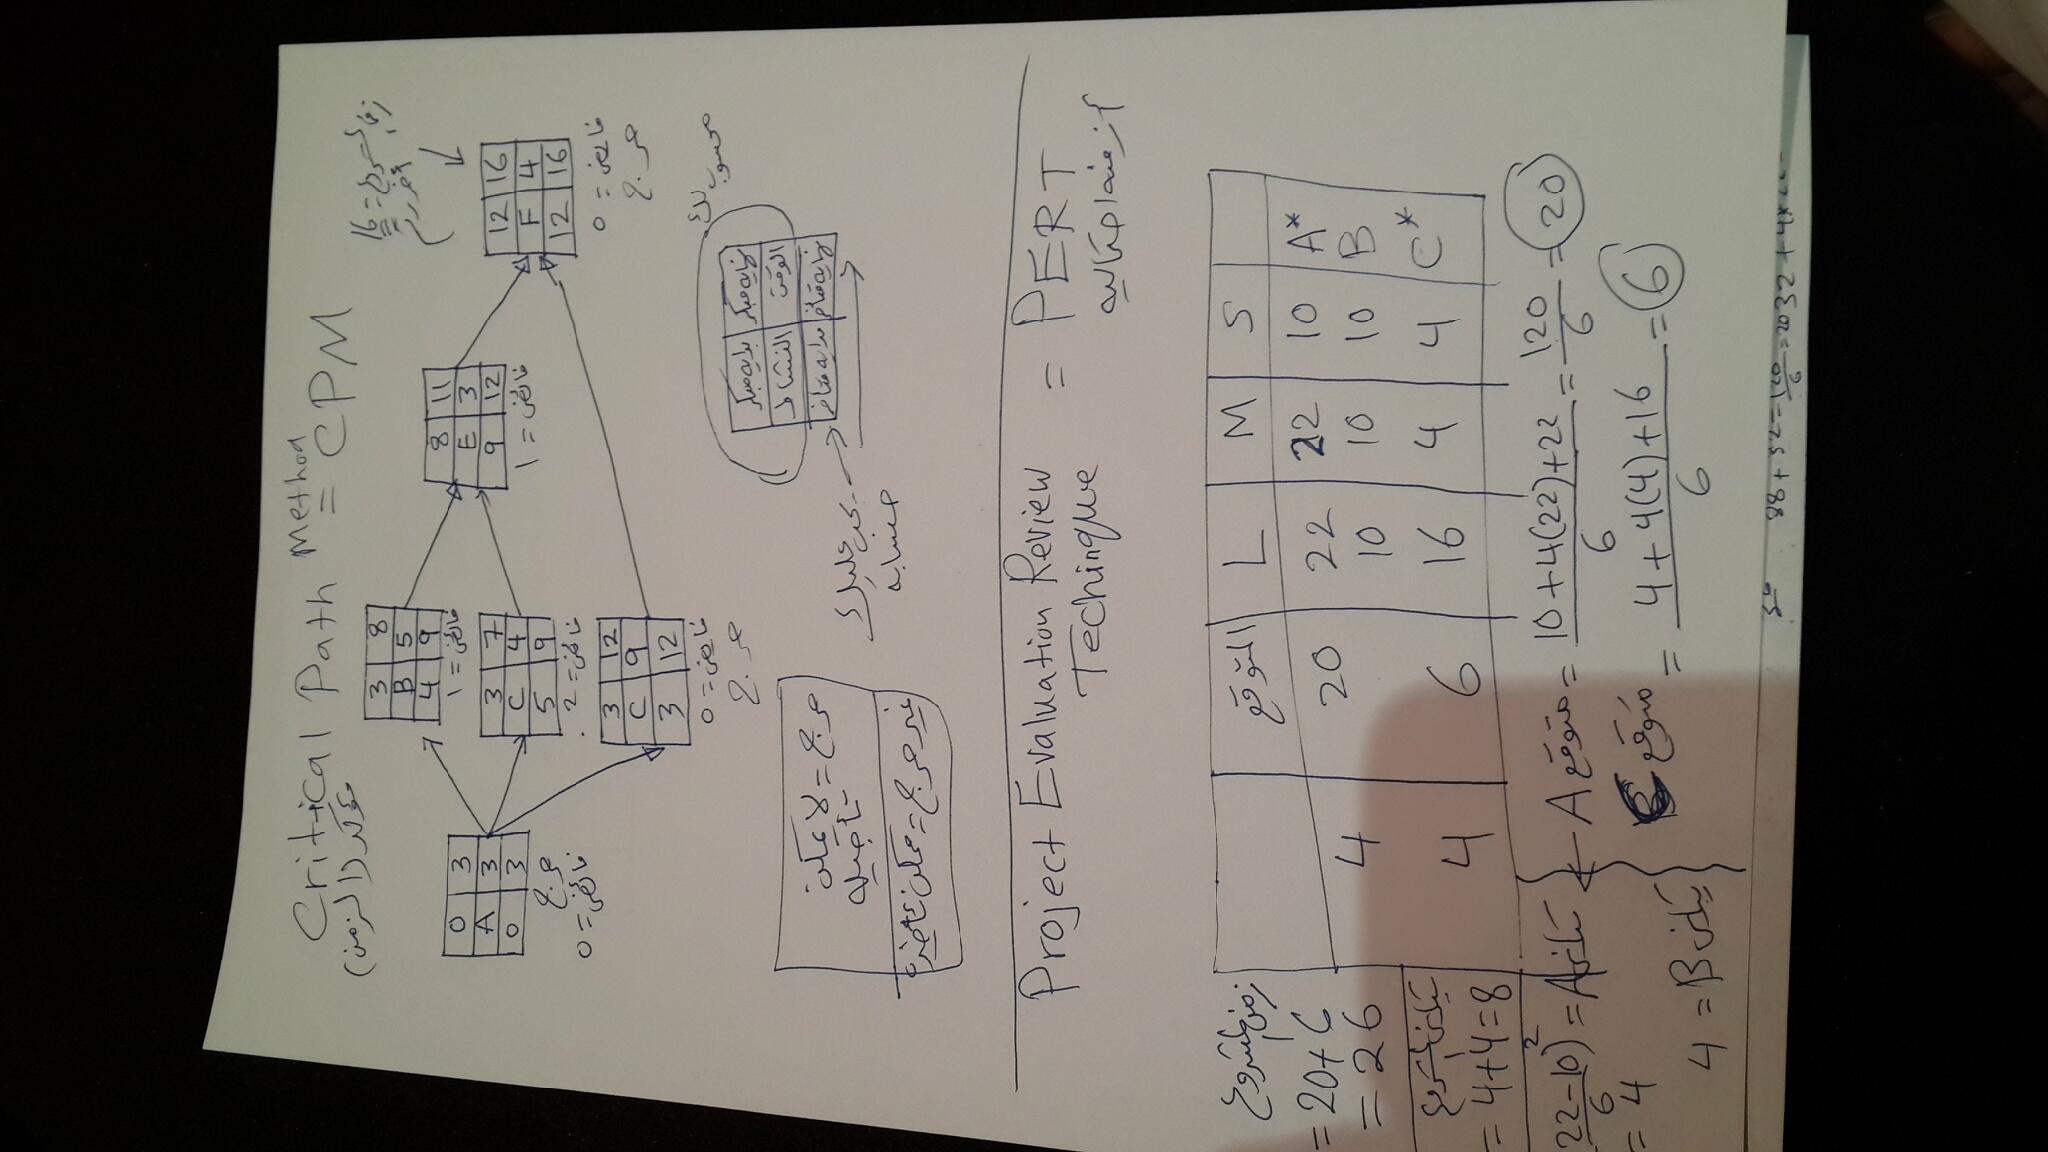 Critical Path Method = CPM
(مؤكد الزمن)
زمن المشروع = 16
0 3
A 3
0 3
حرج
فائض = 0
3 8
B 5
4 9
فائض = 1
3 7
C 4
5 9
فائض = 2
3 12
C 9
3 12
فائض = 0
حرج
8 11
E 3
9 12
فائض = 1
12 16
F 4
12 16
فائض = 0
حرج
حرج = لا يمكن
تأجيله
غير حرج = يمكن تأخيره
بداية مبكر نهاية مبكر
النشاط الوقت
بداية متأخر نهاية متأخر
حسابه
Project Evaluation Review Techinque = PERT
أزمنة احتمالية
التوقع L M S
4 20 22 22 10 A*
10 10 10 B
4 6 16 4 4 C*
زمن المشروع
= 20+6
= 26
تباين المشروع
= 4+4=8
(22-10)² = تباين A
6
= 4
4 = تباين B
متوقع A = 10+4(22)+22 = 120 = 20
6 6
متوقع = 4+4(4)+16 = 6
6
88+32=120=20
6